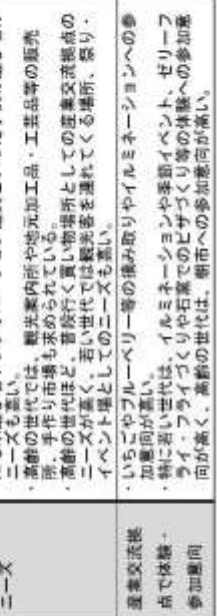 ニーズ
ニーズも高い。
・高齢の世代では、観光案内所や地元加工品・工芸品等の販売
所、手作り市場も求められている。
・高齢の世代ほど、普段行く買い物場所としての産業交流拠点の
ニーズが高く、若い世代では観光客を連れてくる場所、祭り・
イベント場としてのニーズも高い。
産業交流拠
点で体験・
参加意向
・いちごやブルーベリー等の摘み取りやイルミネーションへの参
加意向が高い。
・特に若い世代は、イルミネーションや季節イベント、ゼリーフ
ライ・フライづくりや石窯でのピザづくり等の体験への参加意
向が高く、高齢の世代は、朝市への参加意向が高い。